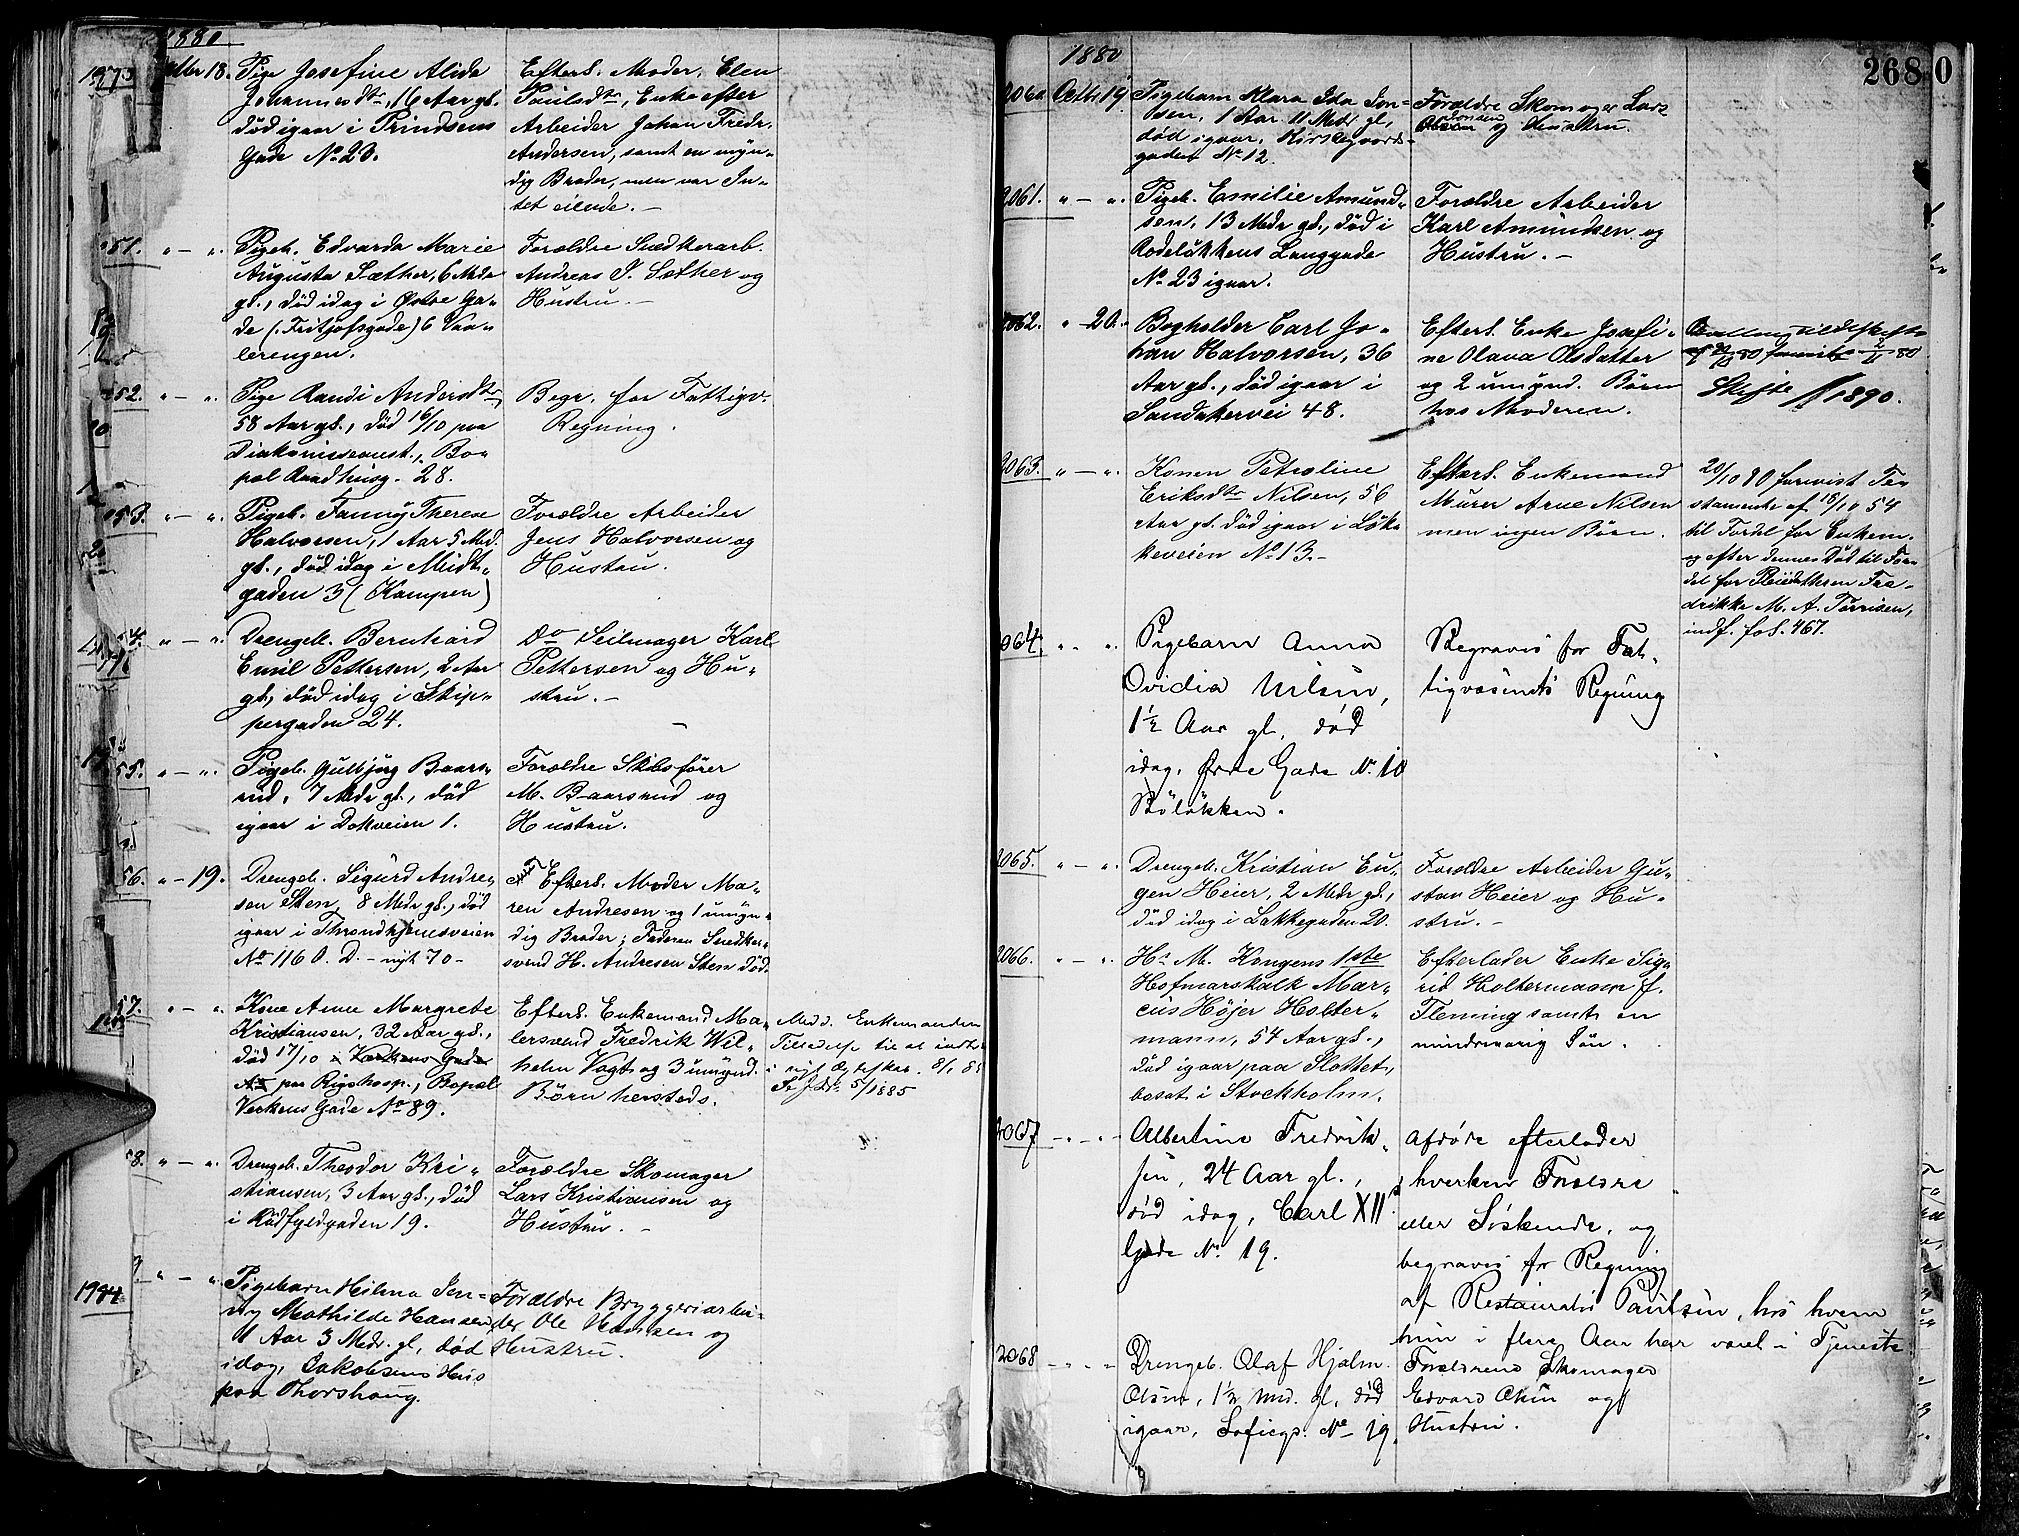 1880
Octbr 18. Pige Josefine Alida
Johannesdtr, 16 Aar gl.
død igaar i Prindsens
Gade No 23.
Efterl. Moder, Elen
Paulsdtr, Enke efter
Arbeider Johan Fredr.
Andersen, samt en myn-
dig Broder, men var In-
tet eiende. -
51. " - ". Pigeb. Edvarda Marie
Augusta Sæther, 6 Mdr
gl., død idag i Østre Ga-
de (Fritjofsgade) 6 Vaa-
lerengen.
Forældre Snedkerarb.
Andreas P. Sæther og
Hustru. -
52. " - ". Pige Randi Andersdtr,
58 Aar gl., død 16/10 paa
Diakonisseanst., Bo-
pæl Raadhusg. 28.
Begr. for Fattigv.
Regning.
53. " - ". Pigeb. Fanny Therese
Halvorsen, 1 Aar 5 Md.
gl., død idag i Midt-
gaden 3 (Kampen)
Forældre Arbeider
Jens Halvorsen og
Hustru.
54. " - ". Drengeb. Bernhard
Emil Pettersen, 2 Aar
gl., død idag i Skip-
pergaden 24.
Do Seilmager Karl
Pettersen og Hu-
stru. -
55. " - ". Pigeb. Gulbjørg Baars-
rud, 7 Mdr gl., død
igaar i Dokveien 1.
Forældre Skibsfører
M. Baarsrud og
Hustru.
56. " - 19. Drengeb. Sigurd Andre-
sen Sten, 8 Mdr gl., død
igaar i Throndhjemsveien
No 116 O. D. - nyt 70 -
Efterl. Moder Ma-
ren Andresen og 1 umyn-
dig Broder; Faderen Snedker-
svend H. Andresen Sten død.
57. " - ". Kone Anne Margrete
Kristiansen, 32 Aar gl.,
død 17/10 i Verkens Gade
No paa Rigshosp., Bopæl
Verkens Gade No 89.
Efterl. Enkemand Ma-
lersvend Fredrik Wil-
helm Vogt og 3 umynd.
Børn hersteds.
Medd. Enkemanden
Tilladelse til at indtr.
i nyt Ægteskab. 8/1 85
5/1885
58. " - ". Drengeb. Theodor Kri-
stiansen, 3 Aar gl., død
i Rødfyldgaden 19.
Forældre Skomager
Lars Kristiansen og
Hustru. -
9. " - ". Pigebarn Hilma Jen-
ny Mathilde Hansen,
1 Aar 3 Mdr. gl, død
idag, Jakobsens Hus
paa Thorshaug.
Forældre Bryggeriarbei-
der Ole Hansen og
Hustru.
1880
268
2060 Octbr. 19. Pigebarn Klara Ida Jon-
sen, 1 Aar 11 Mdr gl,
død igaar, Kirkegaards-
gaden No 12.
Forældre Skomager Lars
Jonsen og Hustru.
2061. " - ". Pigeb. Emilie Amund-
sen, 13 Mdr gl., død i
Rodeløkkens Langgade
No 23 igaar.
Forældre Arbeider
Karl Amundsen og
Hustru. -
2062. " 20. Bogholder Carl Jo-
han Halvorsen, 36
Aar gl., død igaar i
Sandakervei 48.
Efterl. Enke Josefi-
ne Olava Olsdatter
og 2 umynd. Børn
hos Moderen.
Skifte 1890.
2063. " - ". Konen Petroline
Eriksdtr Nilsen, 56
Aar gl. død igaar i Løk-
keveien No 13. -
Efterl. Enkemand
Murer Arne Nilsen
men ingen Børn.
20/10 80 forevist Te-
stamente af 18/10 54
til Fordel for Enkem.
og efter dennes Død til For-
del for Pleiedatteren Fre-
drikke M. A. Tørrisen,
indf. fol. 467.
2064. " - ". Pigebarn Anna
Ovidia Nilsen,
1½ Aar gl. død
idag, Øvre Gade No 10
Bøløkken.
Begraves for Fat-
tigvæsenets Regning
2065. " - ". Drengeb. Kristian Eu-
gen Heier, 2 Mdr gl.,
død idag i Lakkegaden 20.
Forældre Arbeider Gu-
stav Heier og Hu-
stru. -
2066. " - ". Hs M. Kongens 1ste
Hofmarskalk Mar-
cus Højer Holter-
mann, 54 Aar gl.,
død igaar paa Slottet,
bosat i Stockholm.
Efterlader Enke Sig-
rid Holtermann f.
Fleming samt en
mindreaarig Søn.
2067 - " - Albertine Fredrik-
sen, 24 Aar gl.,
død idag, Carl XIIs
Gade No 19.
Afdøde efterlader
hverken Forældre
eller Søskende, og
begraves for Regning
af Restauratør Paulsen, hos hvem
hun i flere Aar har været i Tjeneste
2068 - " - Drengeb. Olaf Hjalm.
Olsen, 1½ Md. gl., død
igaar, Sofiegs. No 19.
Forældrene Skomager
Edvard Olsen og
Hustru.